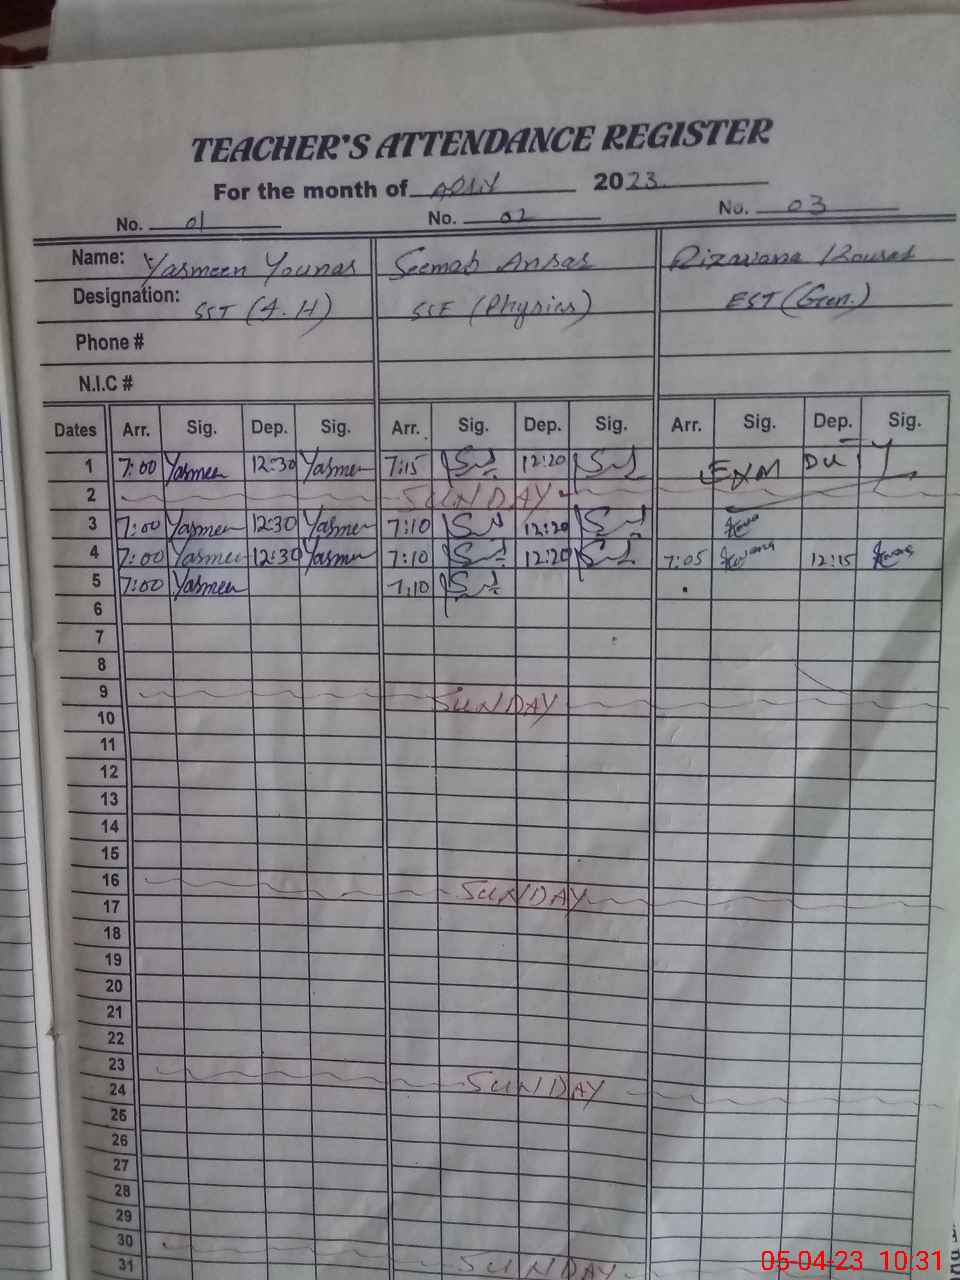 TEACHER'S ATTENDANCE REGISTER
For the month of 2023
No. 01 No. 02 No. 03
Name: Yasmeen Younas Seemab Ansar Rizwana Kousar
Designation: SST (A.H) SSE (Physics) EST (Gen.)
Phone #
N.I.C #
Dates Arr. Sig. Dep. Sig. Arr. Sig. Dep. Sig. Arr. Sig. Dep. Sig.
1 7:00 Yasmeen 12:30 Yasmeen 7:15 12:20 EXM DUTY
2 SUNDAY
3 7:00 Yasmeen 12:30 Yasmeen 7:10 12:20
4 7:00 Yasmeen 12:30 Yasmeen 7:10 12:20 7:05 12:15
5 7:00 Yasmeen 7:10
6
7
8
9 SUNDAY
10
11
12
13
14
15
16 SUNDAY
17
18
19
20
21
22
23 SUNDAY
24
25
26
27
28
29
30
31 SUNDAY
05-04-23 10:31